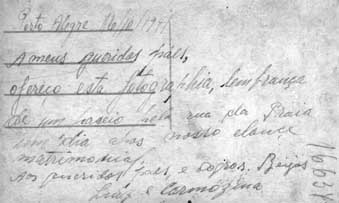 Porto Alegre
A meus queridos Paes,
ofereço esta fotographia, lembrança
de um passeio pela rua da Praia
um dia nosso enlace
matrimonial.
Aos queridos Paes, e sogros. Beijos
Luiz e Carmozina